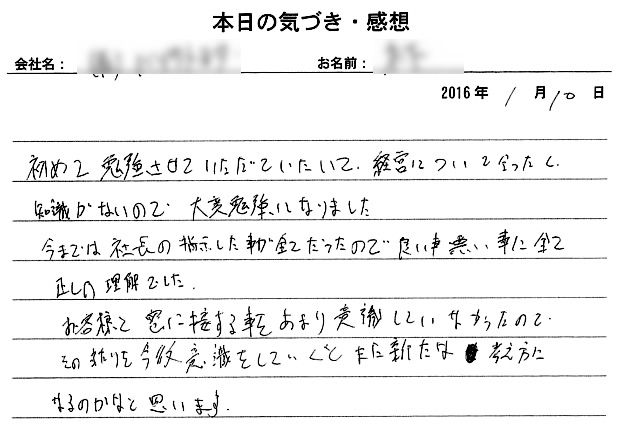 本日の気づき・感想
会社名：
お名前：
2016年 1月10日
初めて勉強させていただていたいて、経営についてまったく
知識がないので 大変勉強になりました
今までは 社長の指示した事が全てだったので 良い事 悪い事に全て
正しの理解でした.
お客様と 密に接する事を あまり意識していなかったので
その辺りを今後 意識をしていくと また新たな 考え方に
なるのかなと思います.